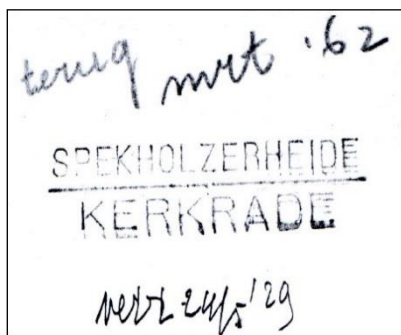 terug mrt '62
SPEKHOLZERHEIDE
KERKRADE
verz 24/5 '29